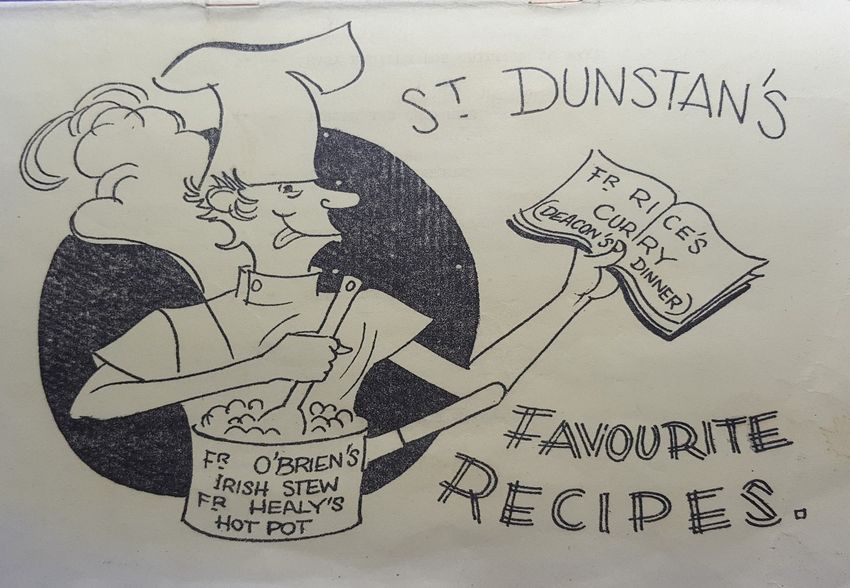 ST DUNSTAN'S
FR RICE'S
CURRY
(DEACON'S DINNER)
FAVOURITE
RECIPES.
FR O'BRIEN'S
IRISH STEW
FR HEALY'S
HOT POT